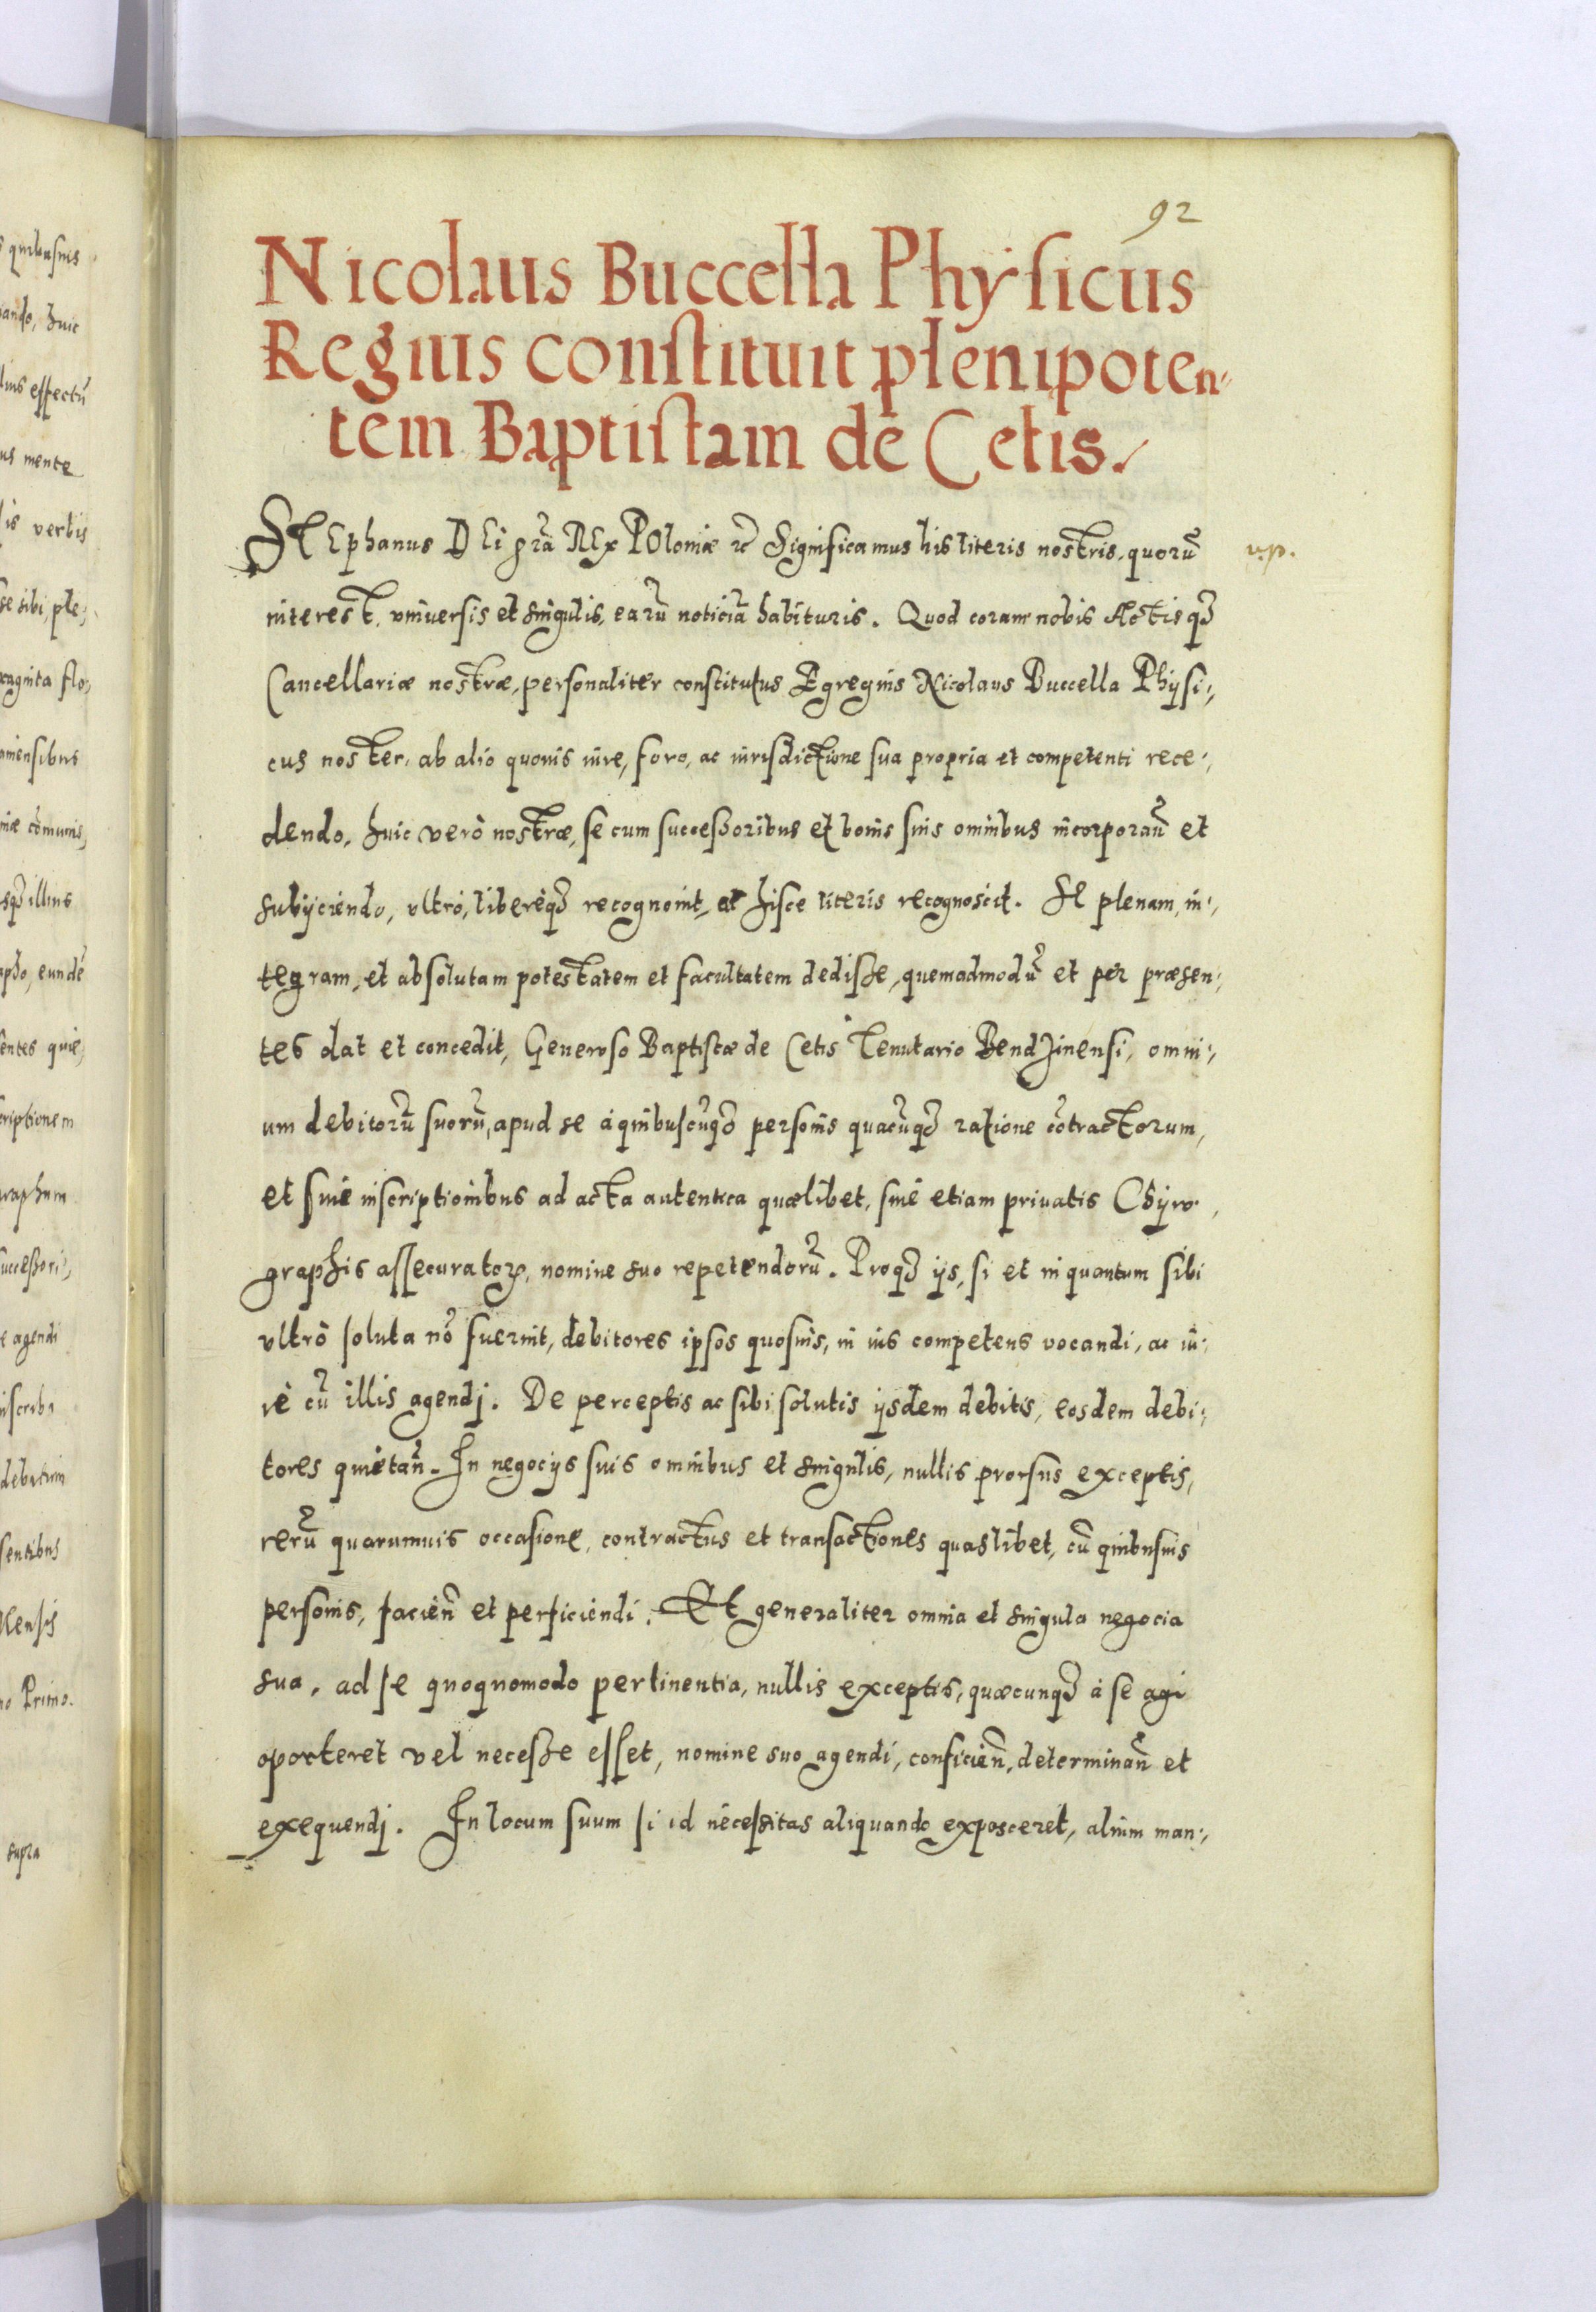 92
Nicolaus Buccella Physicus
Regius constituit plenipoten-
tem Baptistam de Cetis.
STEphanus DEi gra͂ REx POloniæ etc͂ Significamus his literis nostris, quoru͂
v.p.
interest, vniuersis et singulis, earu͂ noticia͂ habituris. Quod coram nobis Actisq3
Cancellariæ nostræ, personaliter constitutus Egregius Nicolaus Buccella Physi-,
cus noster, ab alio quouis iure, foro, ac iurisdictione sua propria et competenti rece-,
dendo, huic verò nostræ, se cum successoribus et bonis suis omnibus incorporan͂ et
subijciendo, vltrò, liberèq3 recognouit, et hisce literis recognoscit. Se plenam, in-,
tegram, et absolutam potestatem et facultatem dedisse, quemadmodu͂ et per præsen-,
tes dat et concedit, Generoso Baptistæ de Cetis Tenutario Bendzinensi, omni-,
um debitoru͂ suoru͂, apud se à quibuscu͂q3 personis quacu͂q3 ratione co͂tractorum,
et siue inscriptionibus ad acta autentica quælibet, siue etiam priuatis Chyro-,
graphis assecuratoꝝ, nomine suo repetendoru͂. Proq3 ijs, si et in quantum sibi
vltrò soluta no͂ fuerint, debitores ipsos quosuis, in ius competens vocandi, ac iu-,
re cu͂ illis agendj. De perceptis ac sibi solutis ijsdem debitis, eosdem debi-,
tores quietan͂. In negocijs suis omnibus et singulis, nullis prorsus exceptis,
reru͂ quarumuis occasione, contractus et transactiones quaslibet, cu͂ quibusuis
personis, facien͂ et perficiendi. Et generaliter omnia et singula negocia
sua, ad se quoquomodo pertinentia, nullis exceptis, quæcunq3 à se agi
oporteret vel necesse esset, nomine suo agendi, conficien͂, determinan͂ et
exequendj. In locum suum si id necessitas aliquando exposceret, alium man-,